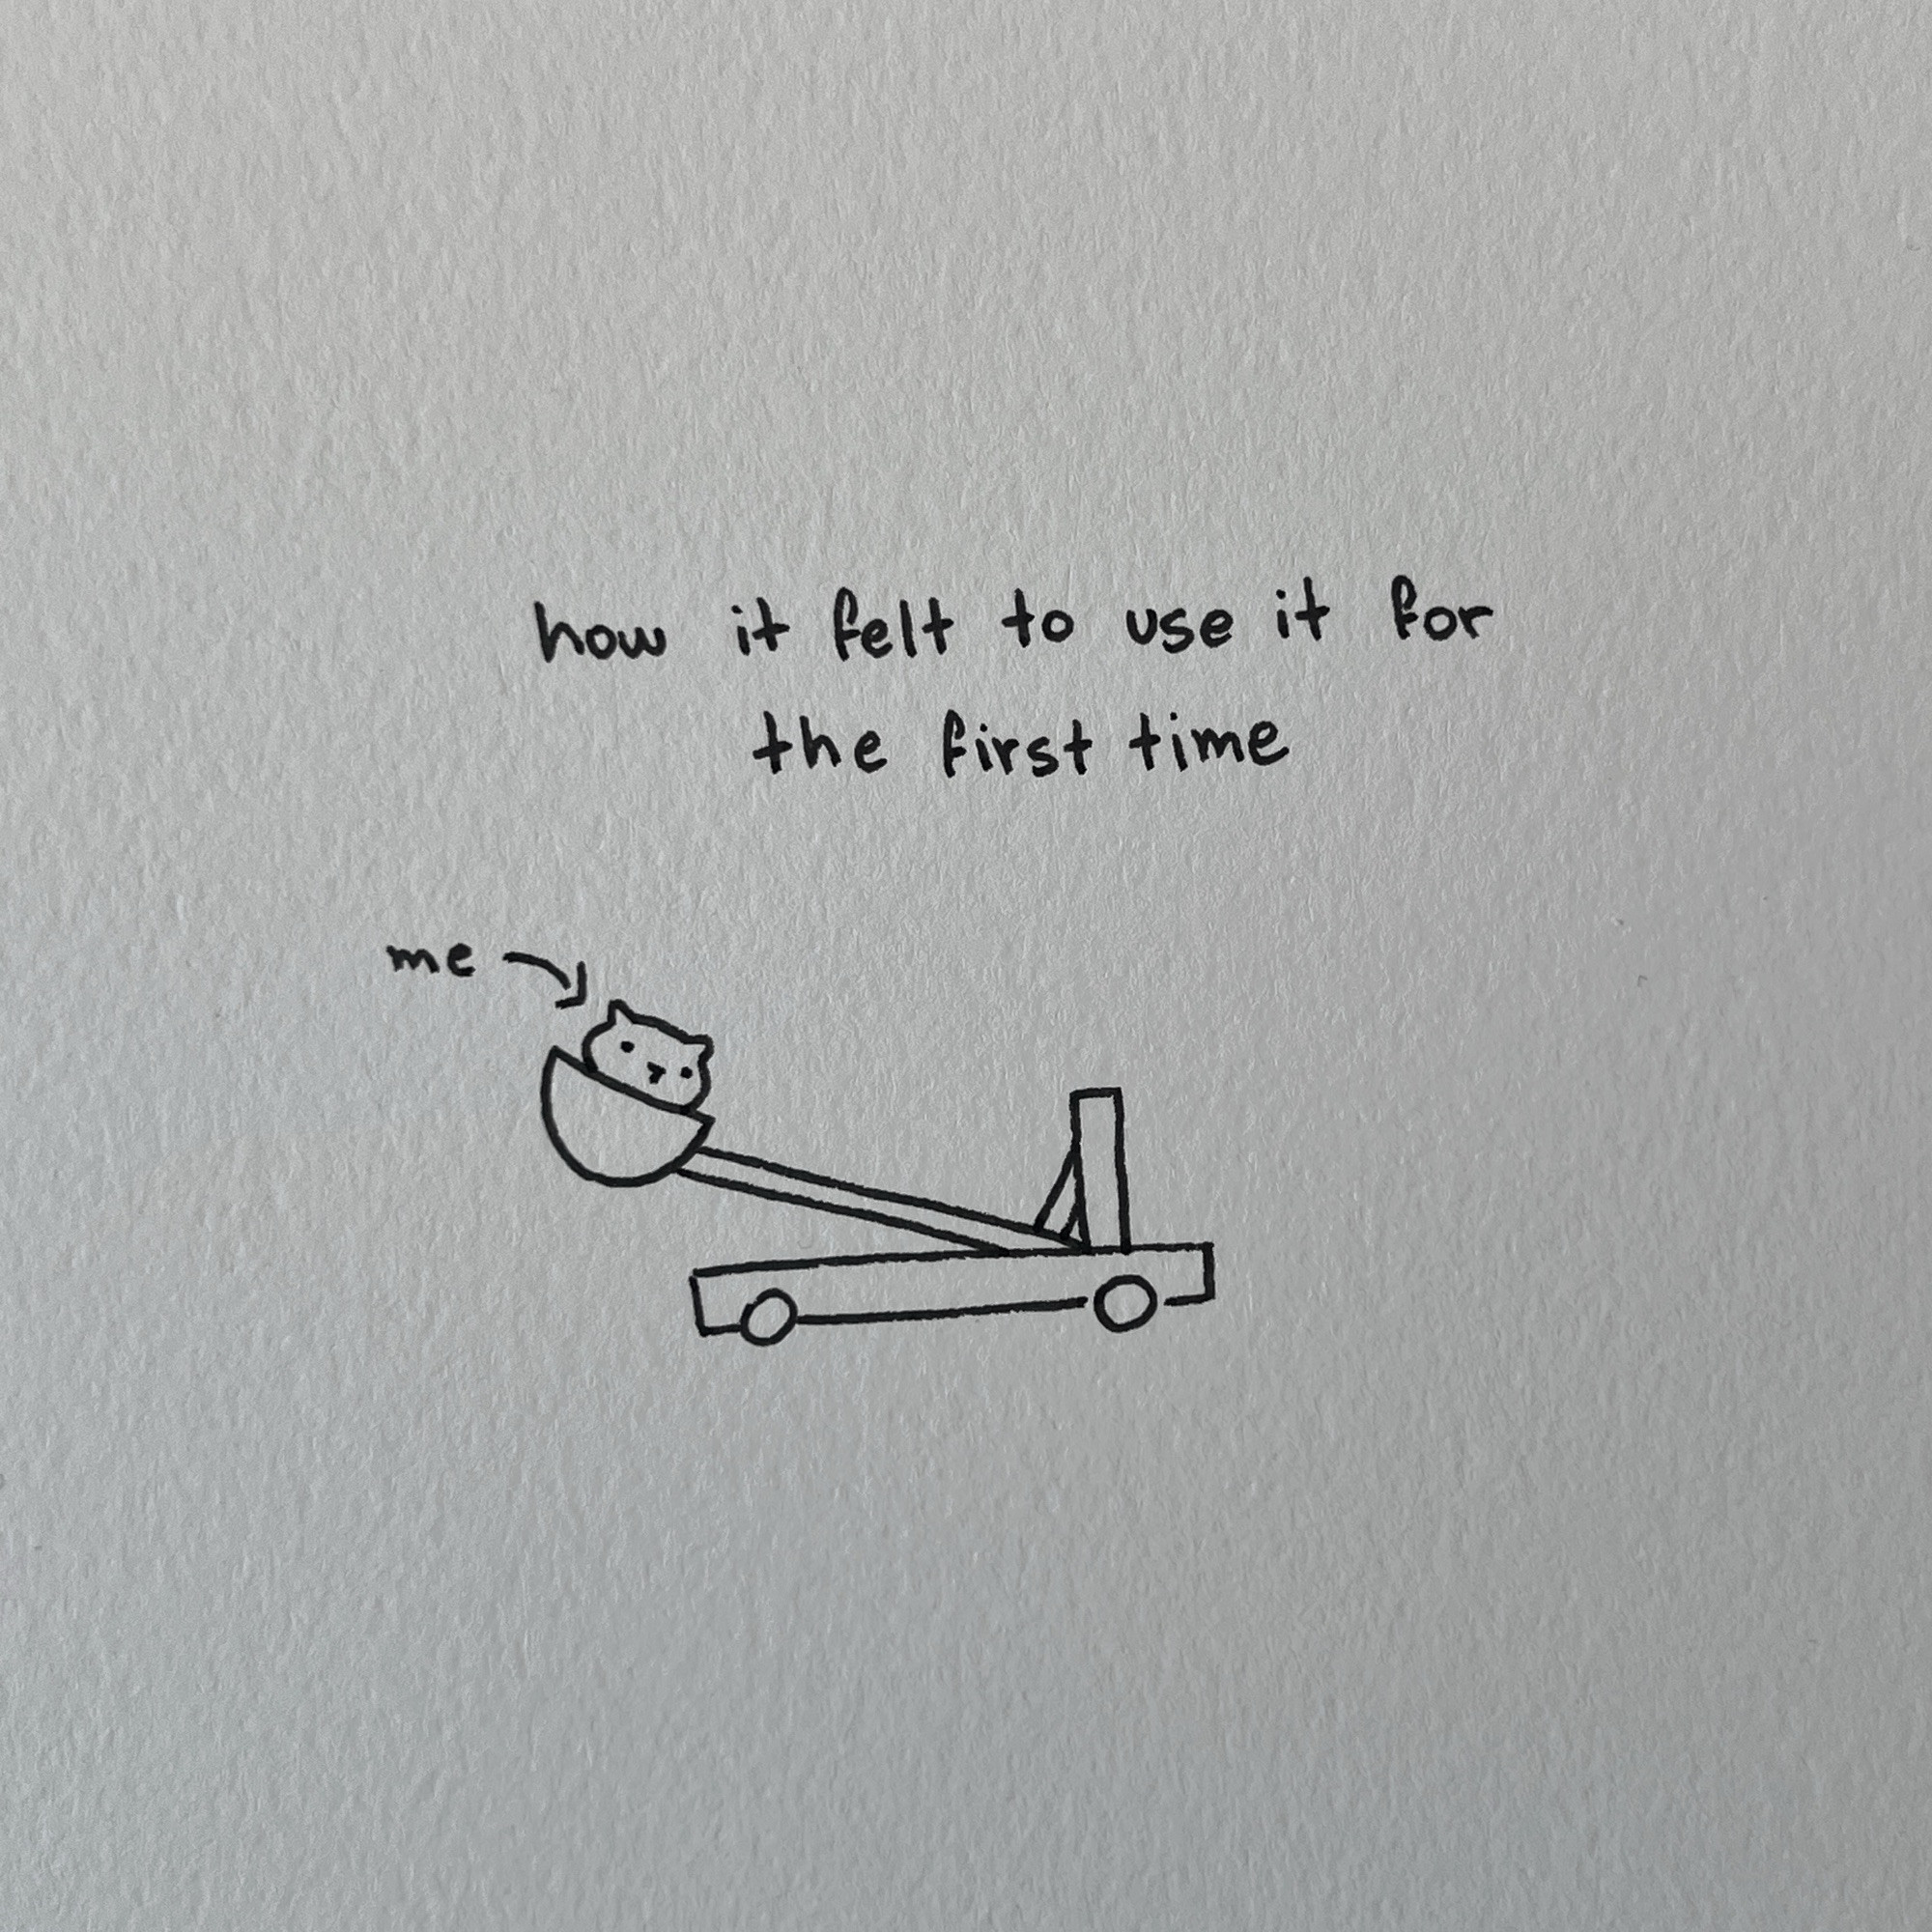 how it felt to use it for
the first time
me